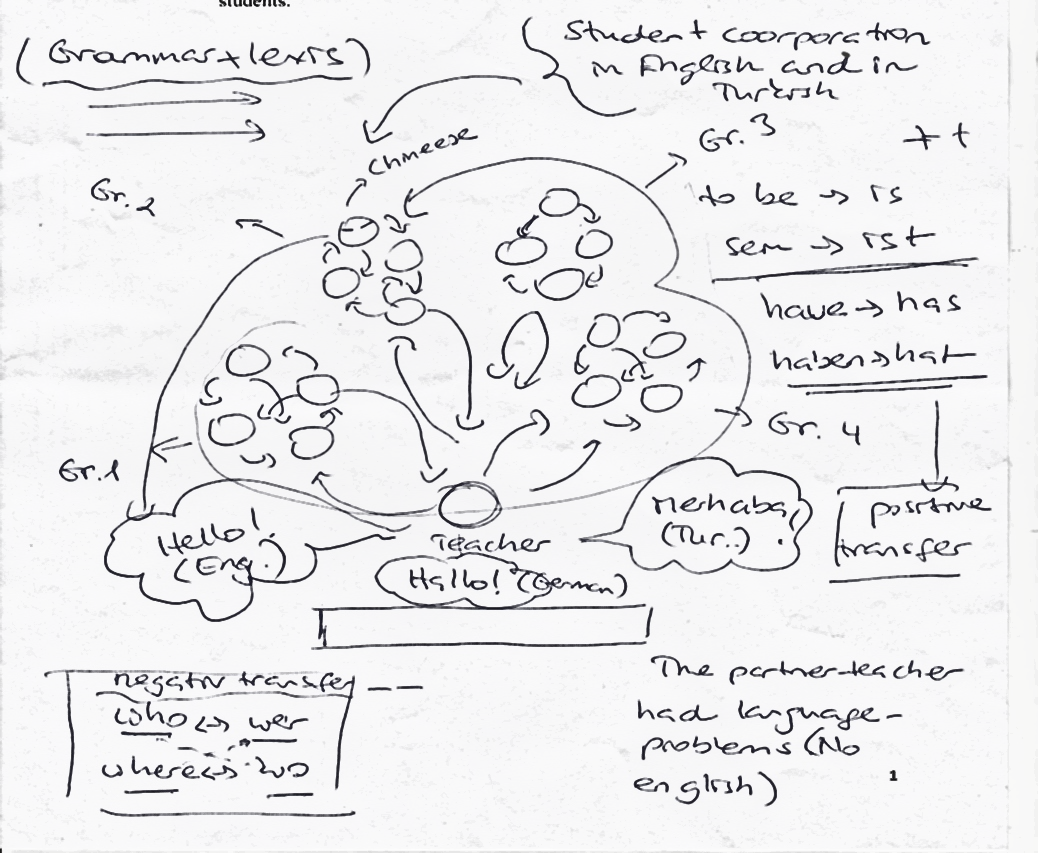 students.
(Grammar + lexis)
Student coorporation
in English and in
Turkish
Chineese
Gr. 3
+ +
Gr. 2
to be → is
sein → ist
have → has
haben → hat
Gr. 4
Gr. 1
positive
transfer
Hello!
(Eng.)
Teacher
Merhaba,
(Tur..)
Hallo! (German)
negativ transfer
who ↔ wer
where ↔ wo
The partner-teacher
had language-
problems (No
english)
1